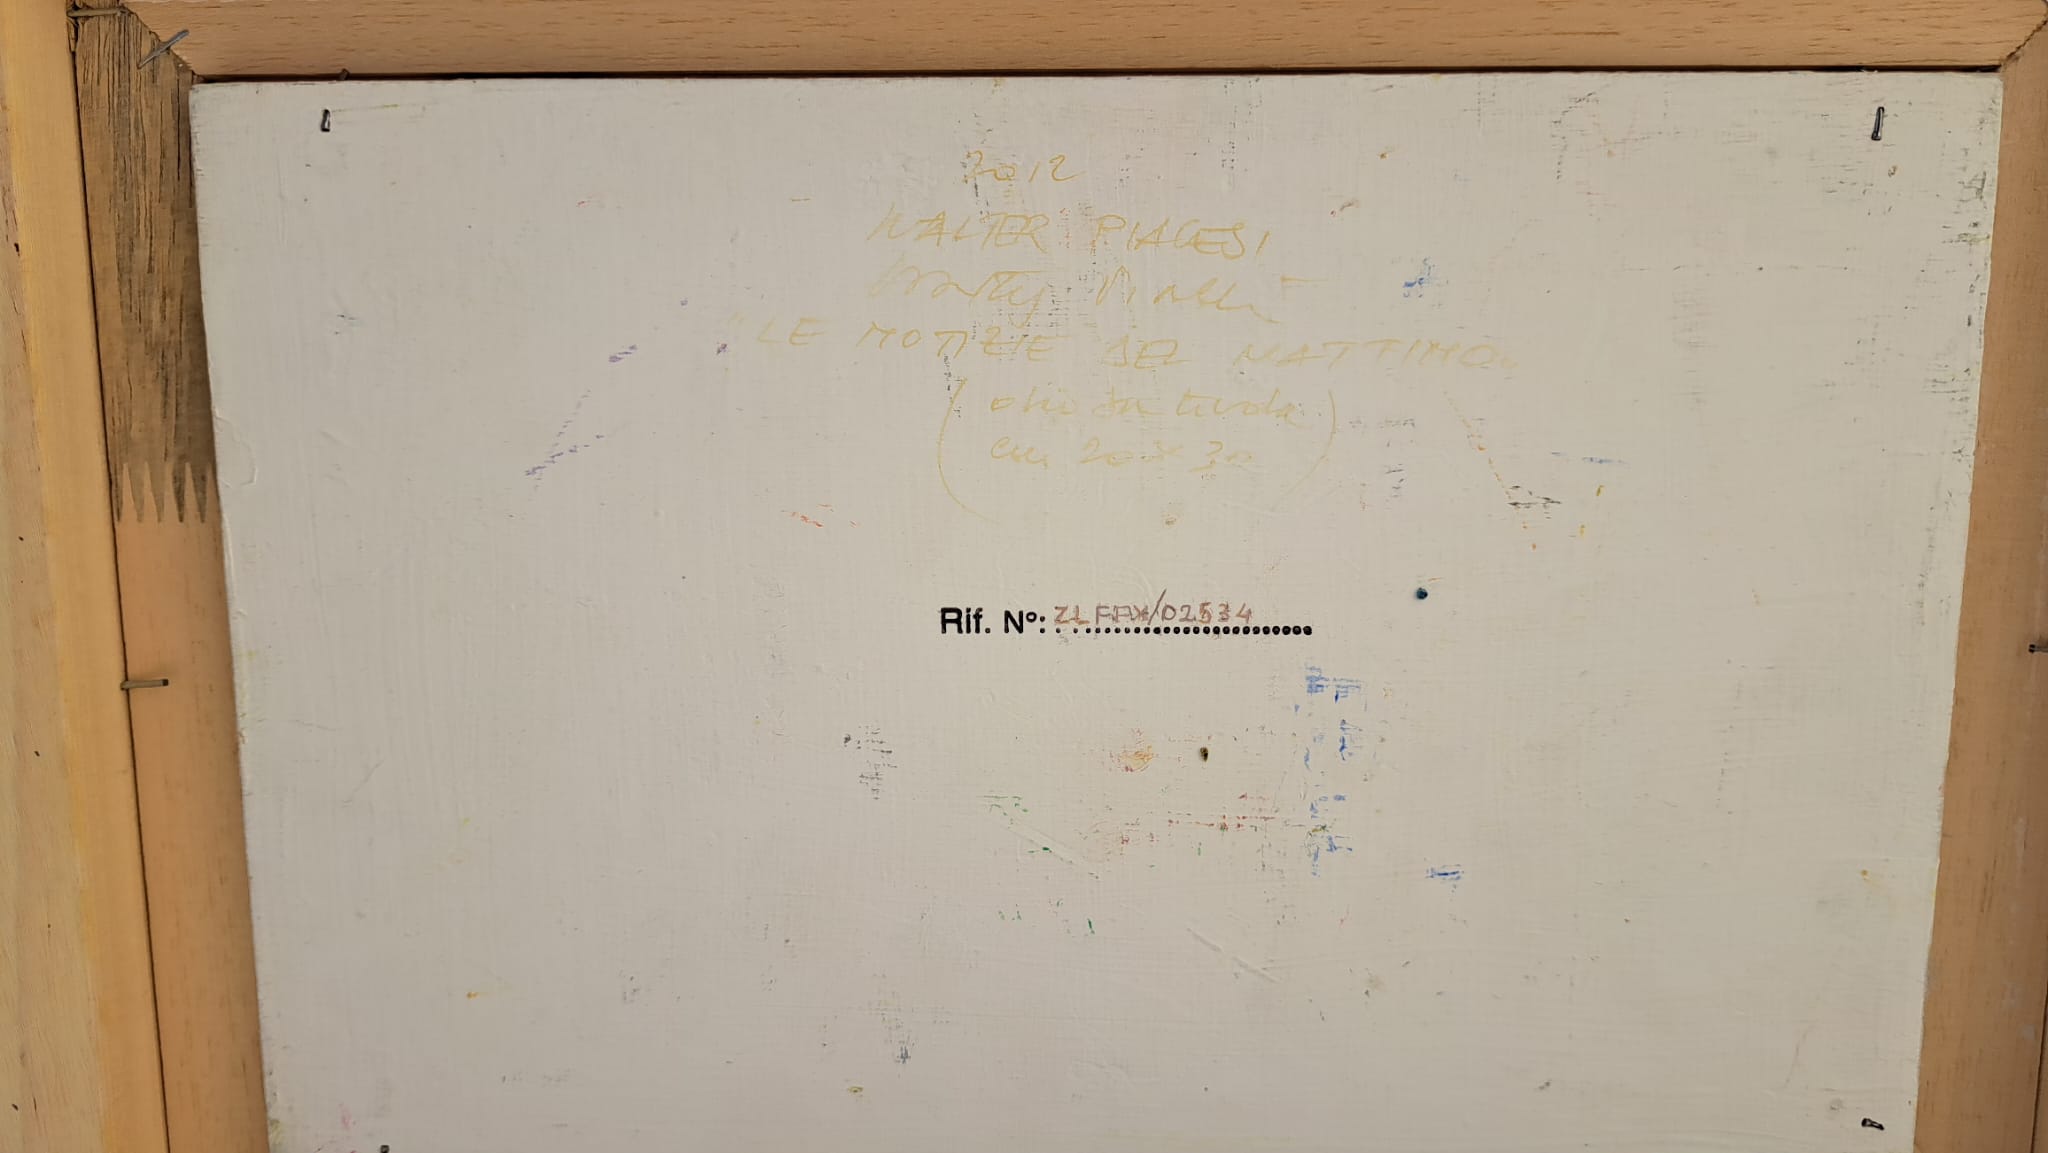 2012
WALTER PIACESI
"LE NOTIZIE DEL MATTINO"
(olio su tavola
cm 20 x 30)
Rif. N°: ZLFFX/02534